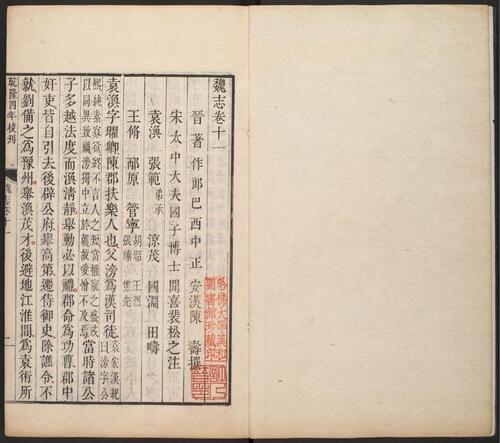 魏志卷十一
晉著作郎巴西中正安漢陳壽撰
宋太中大夫國子博士聞喜裴松之注
袁渙 張範弟承 涼茂 國淵 田疇
王脩 邴原 管寧胡昭 王烈 張臶 焦先
袁渙字曜卿陳郡扶樂人也父滂為漢司徒袁宏漢紀曰滂字公
熙純素寡欲終不言人之短當權寵之盛或以同異致禍滂獨中立於朝故愛憎不及焉當時諸公
子多越法度而渙清靜舉動必以禮郡命為功曹郡中
奸吏皆自引去後辟公府舉高第遷侍御史除譙令不
就劉備之為豫州舉渙茂才後避地江淮間為袁術所
乾隆四年校刊
魏志卷十一
一